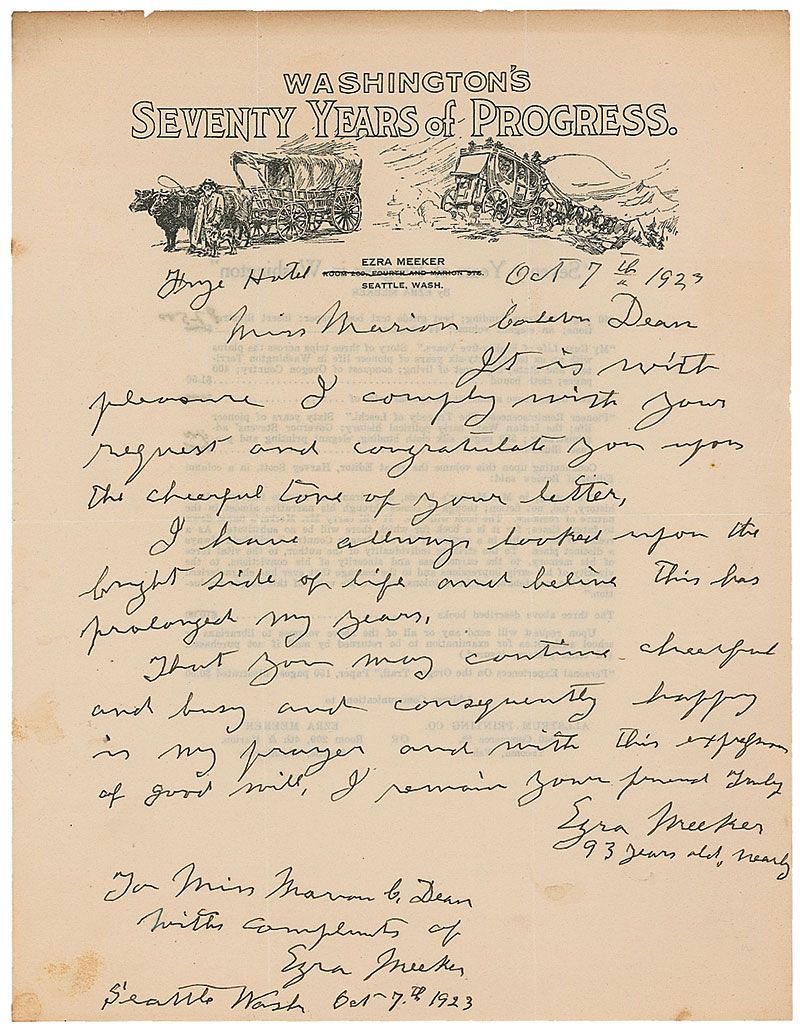 WASHINGTON'S
SEVENTY YEARS of PROGRESS.
EZRA MEEKER
ROOM 200, FOURTH AND MARION STS.
SEATTLE, WASH.
Frye Hotel Oct 7th 1923
Miss Marion Dean
It is with
pleasure I comply with your
request and congratulate you upon
the cheerful tone of your letter,
I have allways looked upon the
bright side of life and believe this has
prolonged my years,
That you may continue cheerful
and busy and consequently happy
is my prayer and with this expression
of good will, I remain your friend Truly
Ezra Meeker
93 years old, nearly
To Miss Marion C. Dean
with compliments of
Ezra Meeker
Seattle Wash Oct 7th 1923